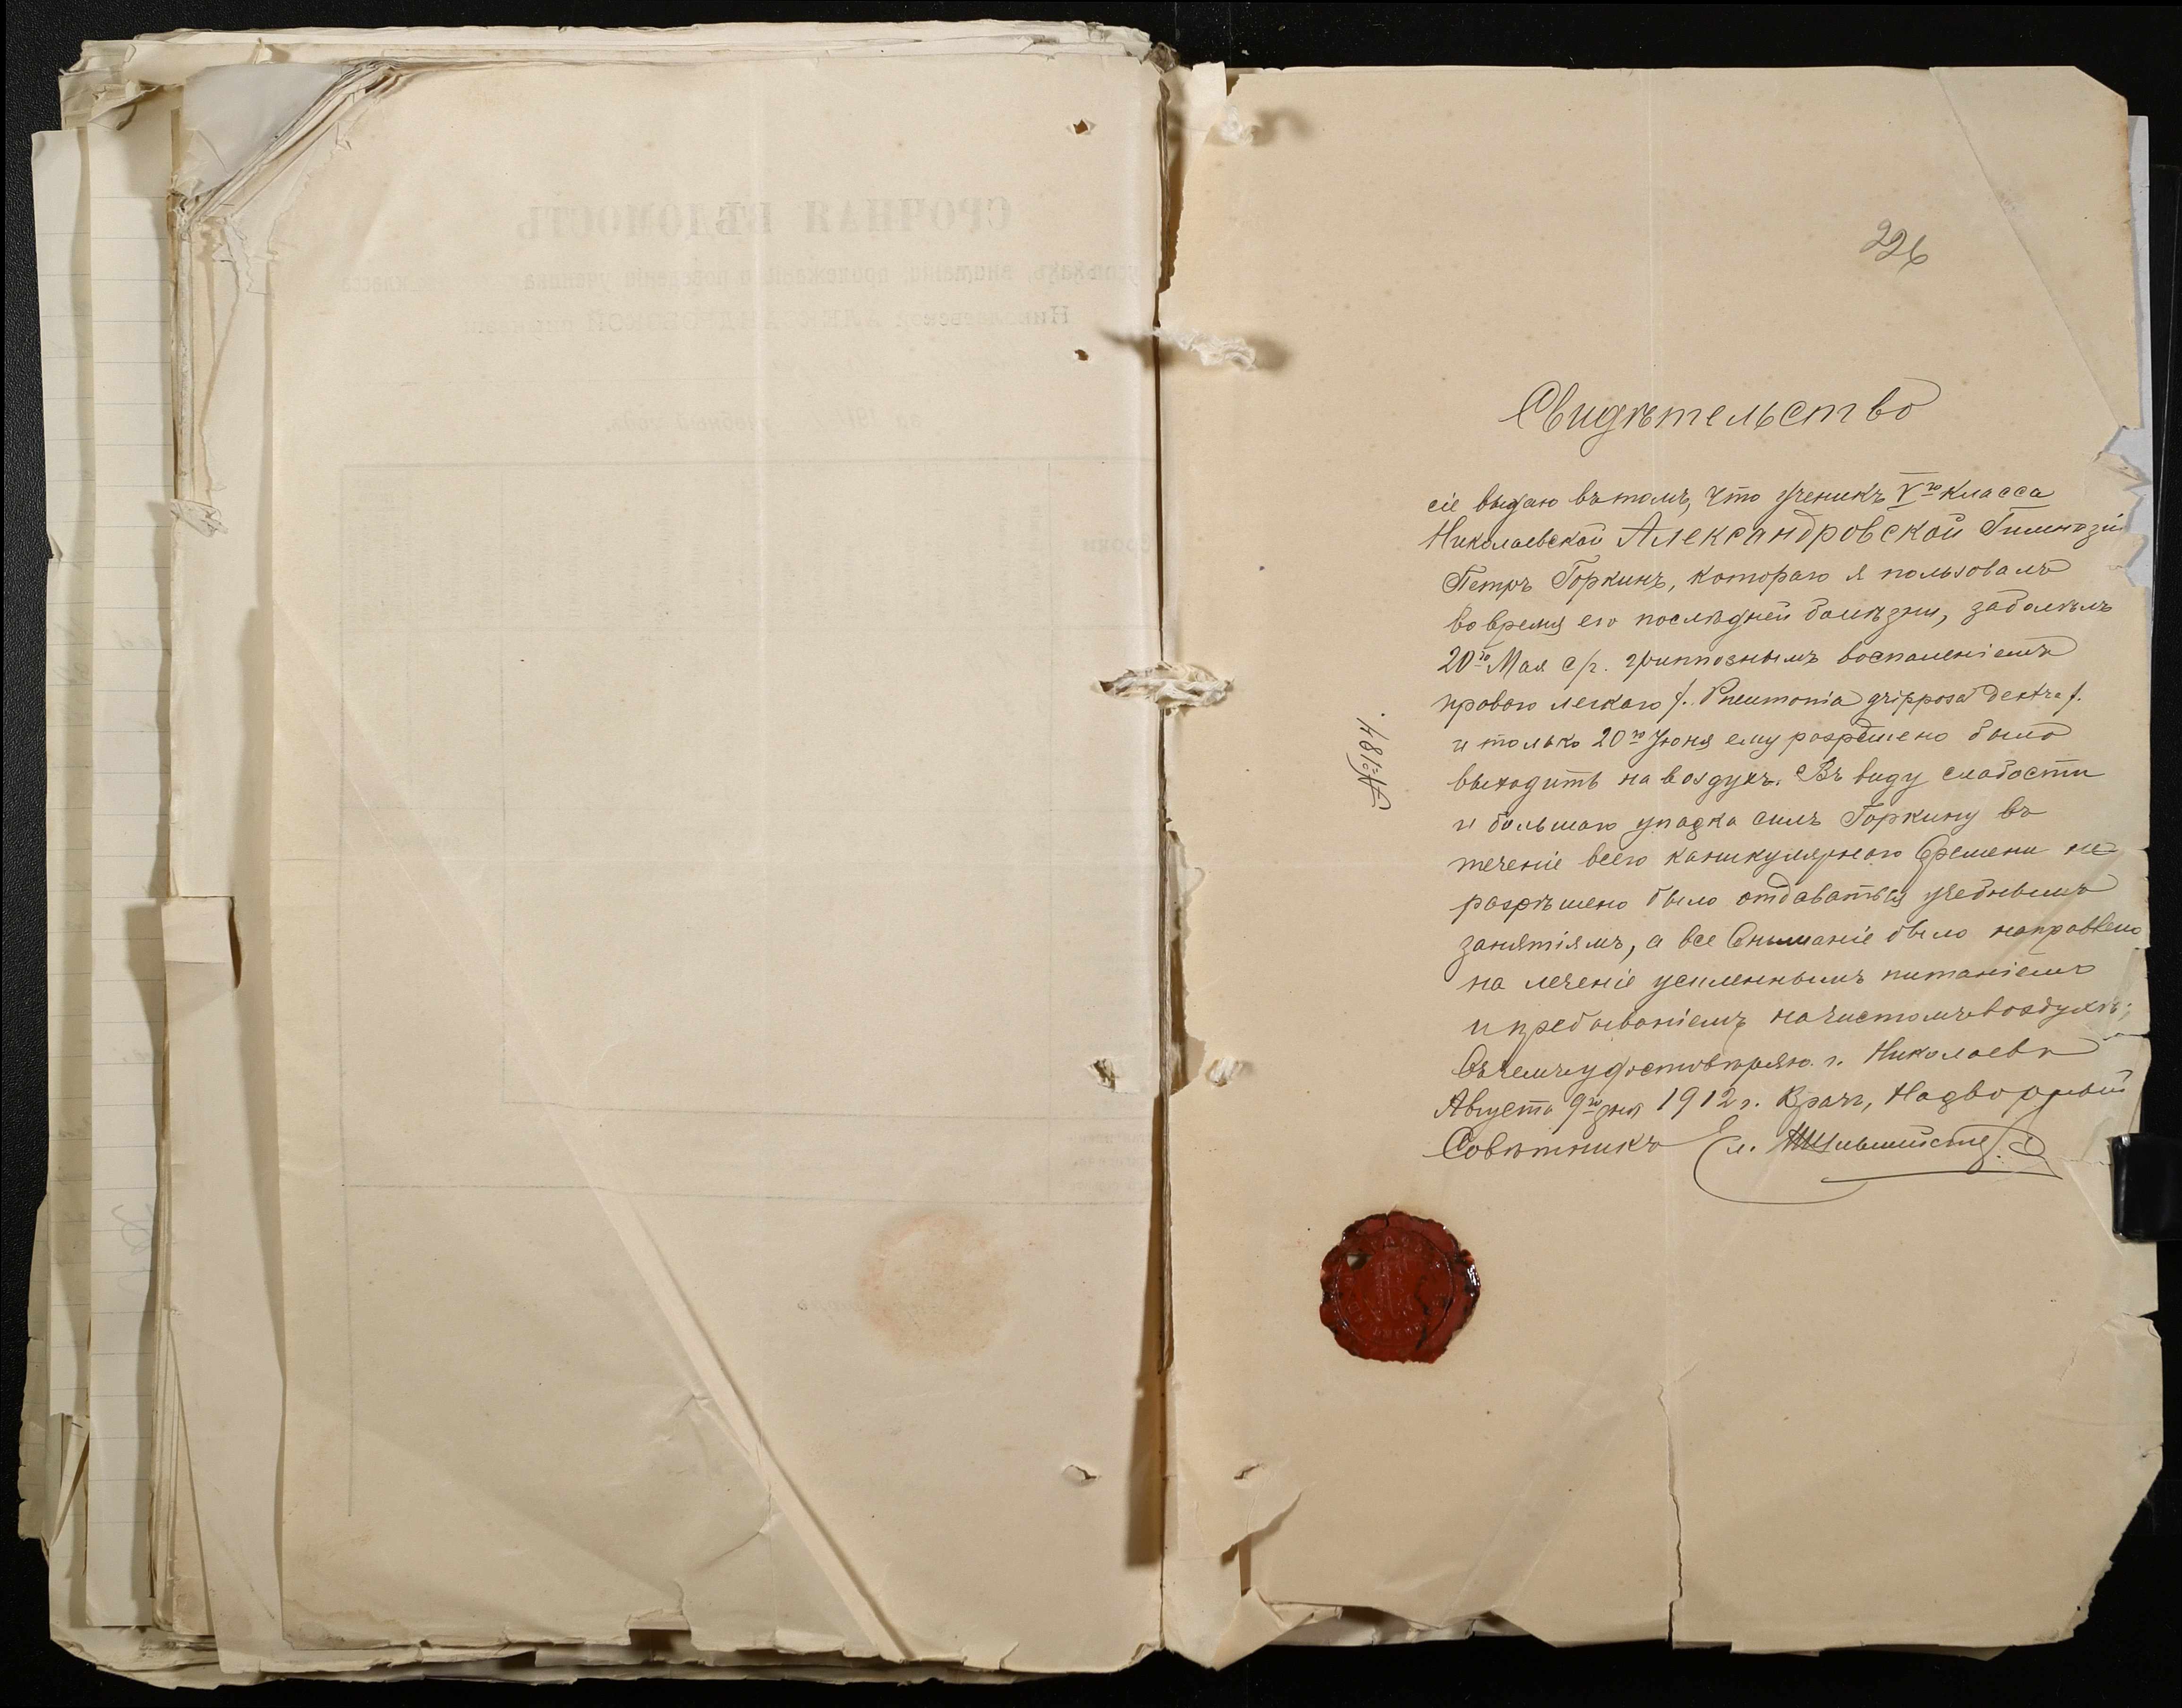 226
Свидѣтельство
сіе выдаю въ томъ, что ученикъ V го класса
Николаевской Александровской Гимназіи
Петръ Горкинъ, котораго я пользовалъ
во время его послѣдней болѣзни, заболѣлъ
20го Мая с/г. гриппознымъ воспаленіемъ
праваго легкаго /. Pneumonia gripposa dextra /.
и только 20го Іюня ему разрѣшено было
выходить на воздухъ. Въ виду слабости
и большаго упадка силъ Горкину въ
теченіе всего каникулярнаго времени не
разрѣшено было отдаваться учебнымъ
занятіямъ, а все вниманіе было направлено
на леченіе усиленнымъ питаніемъ
и пребываніемъ на чистомъ воздухѣ;
въ чемъ удостовѣряю. г. Николаевъ
Августа 9го дня 1912 г. Врачъ, Надворный
Совѣтникъ
№184.
СРОЧНАЯ ВѢДОМОСТЬ
успѣхахъ, вниманіи, прилежаніи и поведеніи ученика класса
Николаевской АЛЕКСАНДРОВСКОЙ гимназіи
на 191 учебный годъ.